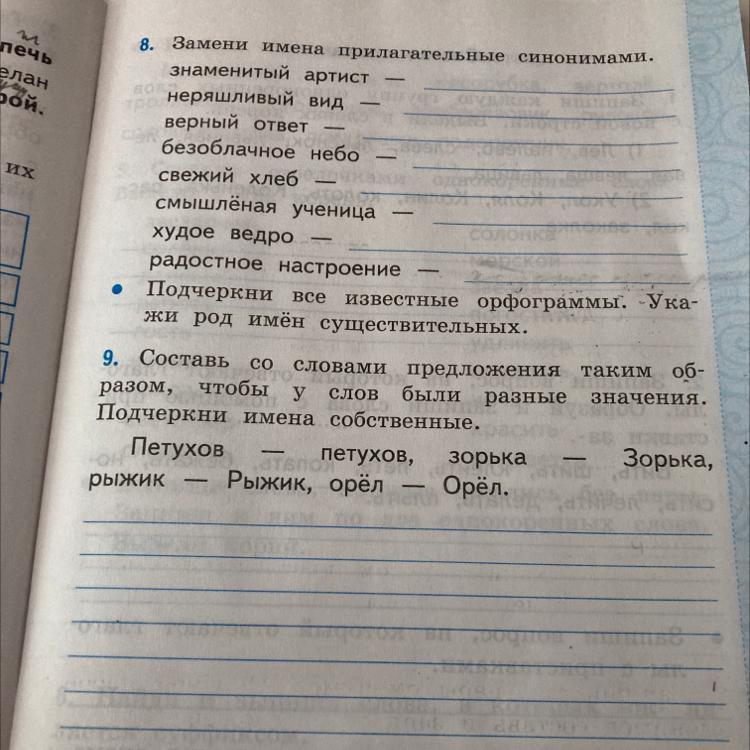 печь
елан
рой.
их
8. Замени имена прилагательные синонимами.
знаменитый артист —
неряшливый вид —
верный ответ —
безоблачное небо —
свежий хлеб —
смышлёная ученица —
худое ведро —
радостное настроение —
• Подчеркни все известные орфограммы. Ука-
жи род имён существительных.
9. Составь со словами предложения таким об-
разом, чтобы у слов были разные значения.
Подчеркни имена собственные.
Петухов — петухов, зорька — Зорька,
рыжик — Рыжик, орёл — Орёл.